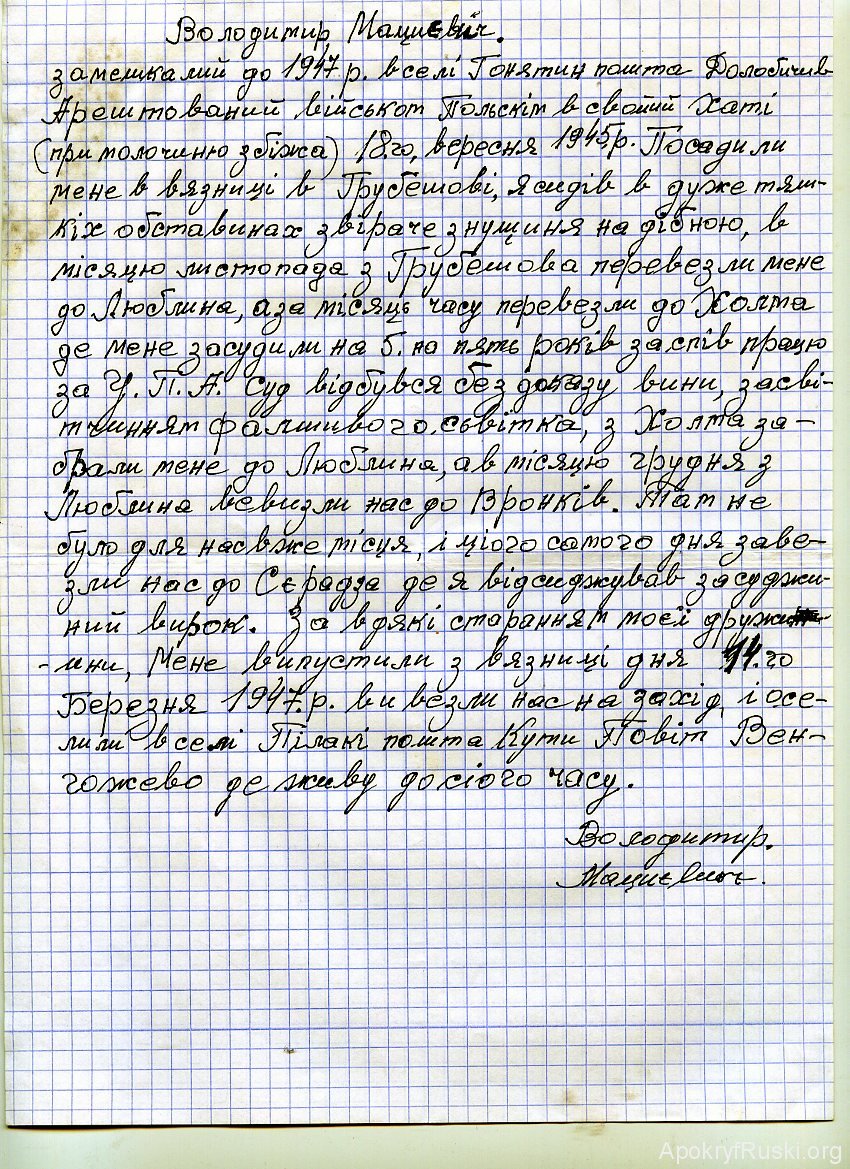 Володимир Мациєвич.
замешкалий до 1947 р. в селі Гонятин пошта Долобичів
Арештований військом Польскім в своїй Хаті
(при молочиню збіжа) 18.го, вересня 1945р. Посадили
мене в вязниці в Грубешові, я сидів в дуже тяш-
кіх обставинах звіраче знущиня на дібною, в
місяцю листопада з Грубешова перевезли мене
до Люблина, а за місяць часу перевезли до Холма
де мене засудили на 5. по пять років за спів працю
за У.П.А. Суд відбувся без доказу вини, засві-
тчинням фалшивого сьвітка, з Холма за-
брали мене до Люблина, а в місяцю грудня з
Люблина вевизли нас до Вронків. Там не
було для нас вже місця, і ціого самого дня заве-
зли нас до Сєрадза де я відсиджував засуджи-
ний вирок. За вдякі старанням моєї дружи-
-ини, Мене випустили з вязниці дня 14.го
Березня 1947.р. ви везли нас на захід, і осе-
лили в селі Пілакі пошта Кути Повіт Вен-
гожево де живу до сіого часу.
Володимир.
Мациєвич.
ApokryfRuski.org